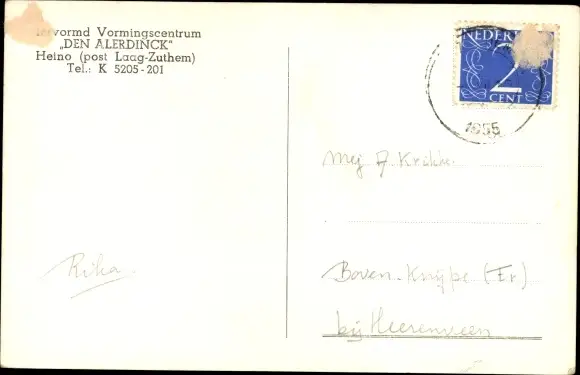 ervormd Vormingscentrum
„DEN ALERDINCK"
Heino (post Laag-Zuthem)
Tel.: K 5205-201
NEDER
2
CENT
1955
Mej A.
Rika
Boven-Knijpe (Fr)
bij Heerenveen